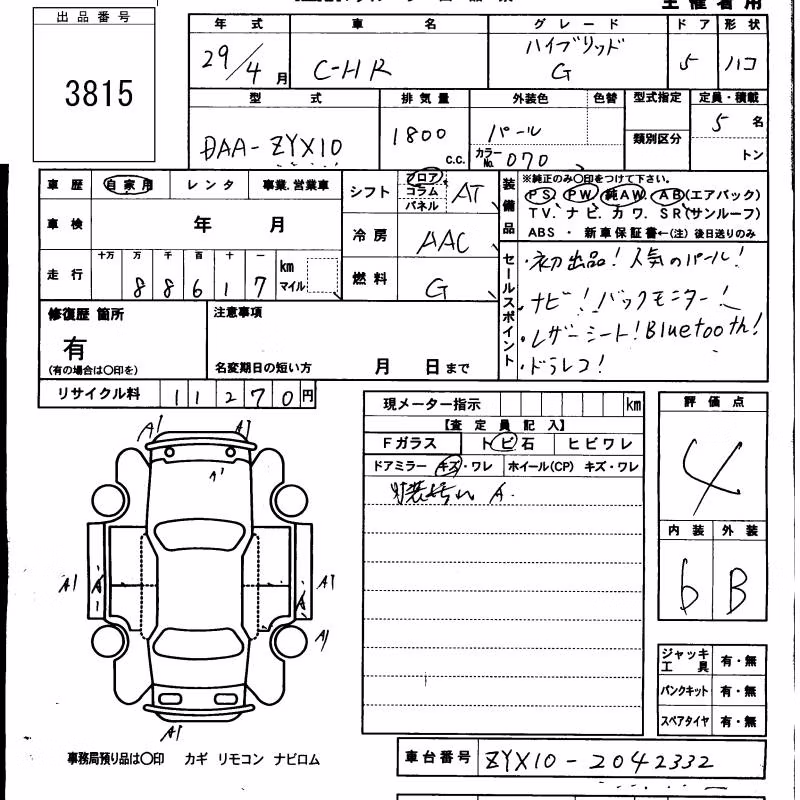 主催者用
出品番号
3815
年式 車名 グレード ドア 形状
29/4月 C-HR ハイブリッド G 5 ハコ
型式 排気量 外装色 色替 型式指定 定員・積載
DAA-ZYX10 1800 c.c. パール 5名
カラーNo. 070 類別区分 トン
車歴 自家用 レンタ 事業.営業車
シフト フロア コラム パネル AT
車検 年 月
冷房 AAC
走行 十万 万 千 百 十 一
88617 km マイル
燃料 G
装備品
※純正のみ○印をつけて下さい。
PS. PW. 純AW. AB(エアバック)
TV. ナビ. カワ. SR(サンルーフ)
ABS ・ 新車保証書←(注) 後日送りのみ
セールスポイント
・初出品!人気のパール!
・ナビ!バックモニター!
・レザーシート!Bluetooth!
・ドラレコ!
修復歴 箇所
有
(有の場合は○印を)
注意事項
名変期日の短い方 月 日まで
リサイクル料 11270円
現メーター指示 km
【査定員記入】
Fガラス トビ石 ヒビワレ
ドアミラー キズ・ワレ ホイール(CP) キズ・ワレ
A.
評価点
4
内装 外装
6 B
A1 A1
A'
A1 A A A1
A1
A1
ジャッキ工具 有・無
パンクキット 有・無
スペアタイヤ 有・無
事務局預り品は○印 カギ リモコン ナビロム
車台番号 ZYX10-2042332